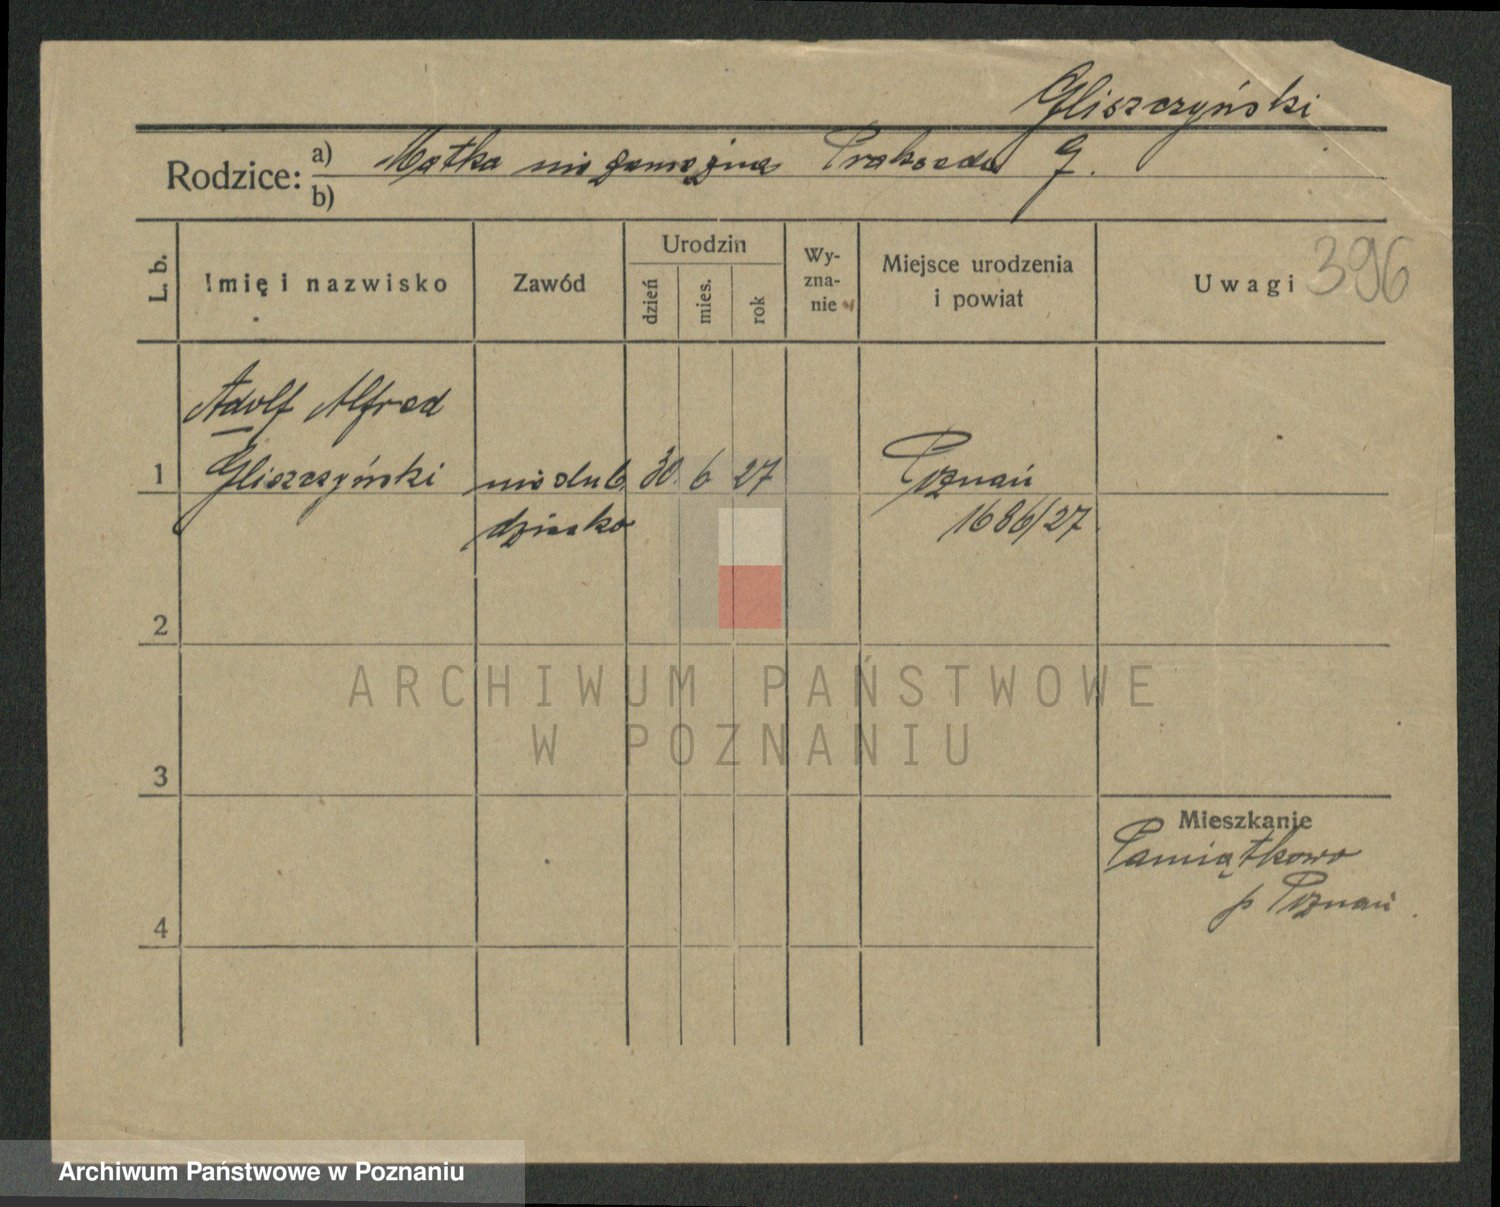 Gliszczyński
Rodzice: a) Matka niezamężna Prakseda G.
b)
L. b.
Imię i nazwisko
Zawód
Urodzin
dzień
mies.
rok
Wy-
zna-
nie
Miejsce urodzenia
i powiat
Uwagi 396
Adolf Alfred
1 Gliszczyński nieślub. 30. 6 27 Poznań
dziecko 1686/27.
2
ARCHIWUM PAŃSTWOWE
W POZNANIU
3
Mieszkanie
Pamiątkowo
p Poznań.
4
Archiwum Państwowe w Poznaniu